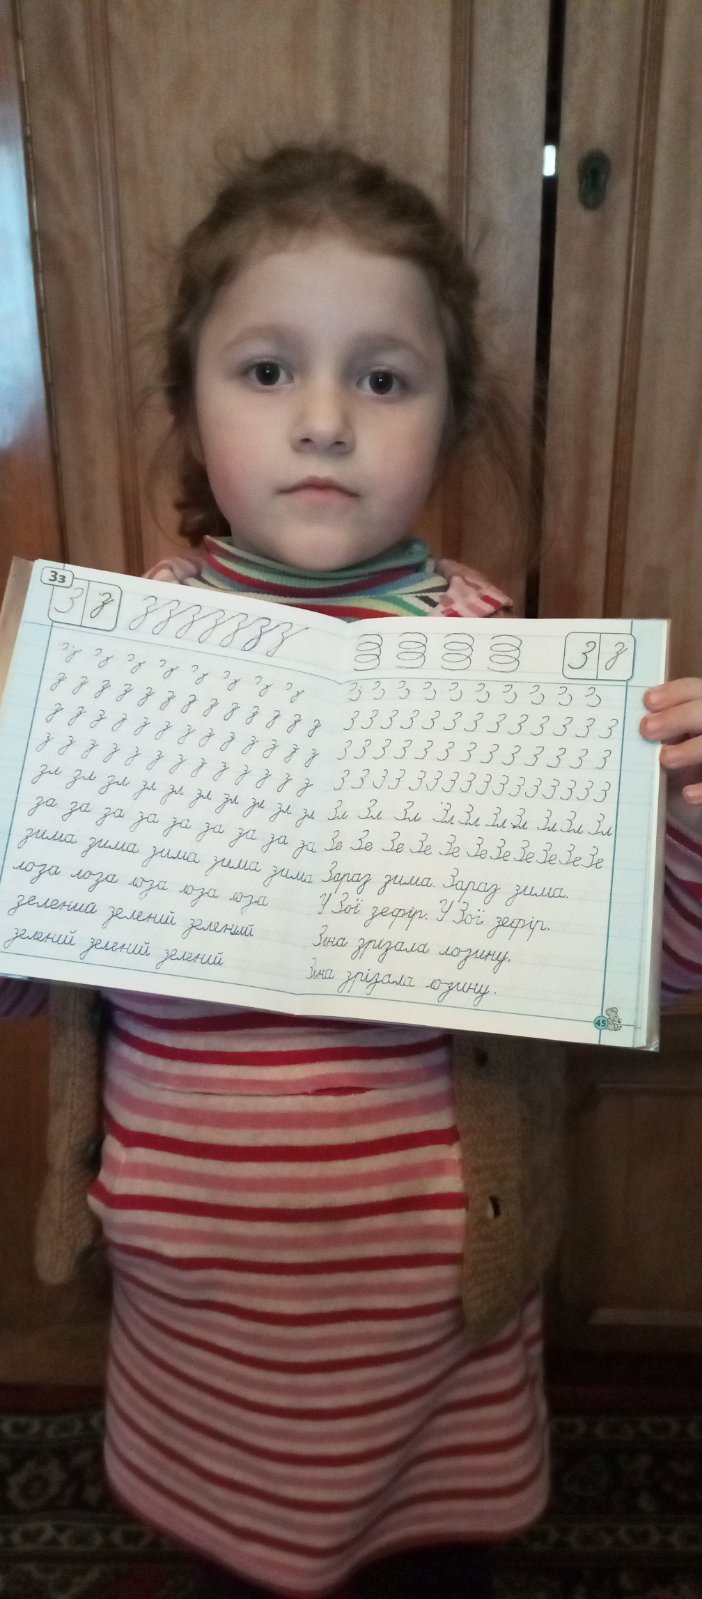 Зз
З з
з з з з з з з
з з з з з з з з
з з з з з з з з з з з
з з з з з з з з з з з
з з з з з з з з з з з
зл зл зл зл зл зл зл зл зл зл
за за за за за за за за за
зима зима зима зима зима
лоза лоза юза юза юза
зелений зелений зелений
зелений зелений зелений
З з
З З З З З З З З З З
З З З З З З З З З З З З З
З З З З З З З З З З З З
З З З З З З З З З З З З З З
Зл Зл Зл Зл Зл Зл Зл Зл Зл Зл
Зе Зе Зе Зе Зе Зе Зе Зе Зе Зе
Зараз зима. Зараз зима.
У Зої зефір. У Зої зефір.
Зіна зрізала лозину.
Зіна зрізала юзину.
45